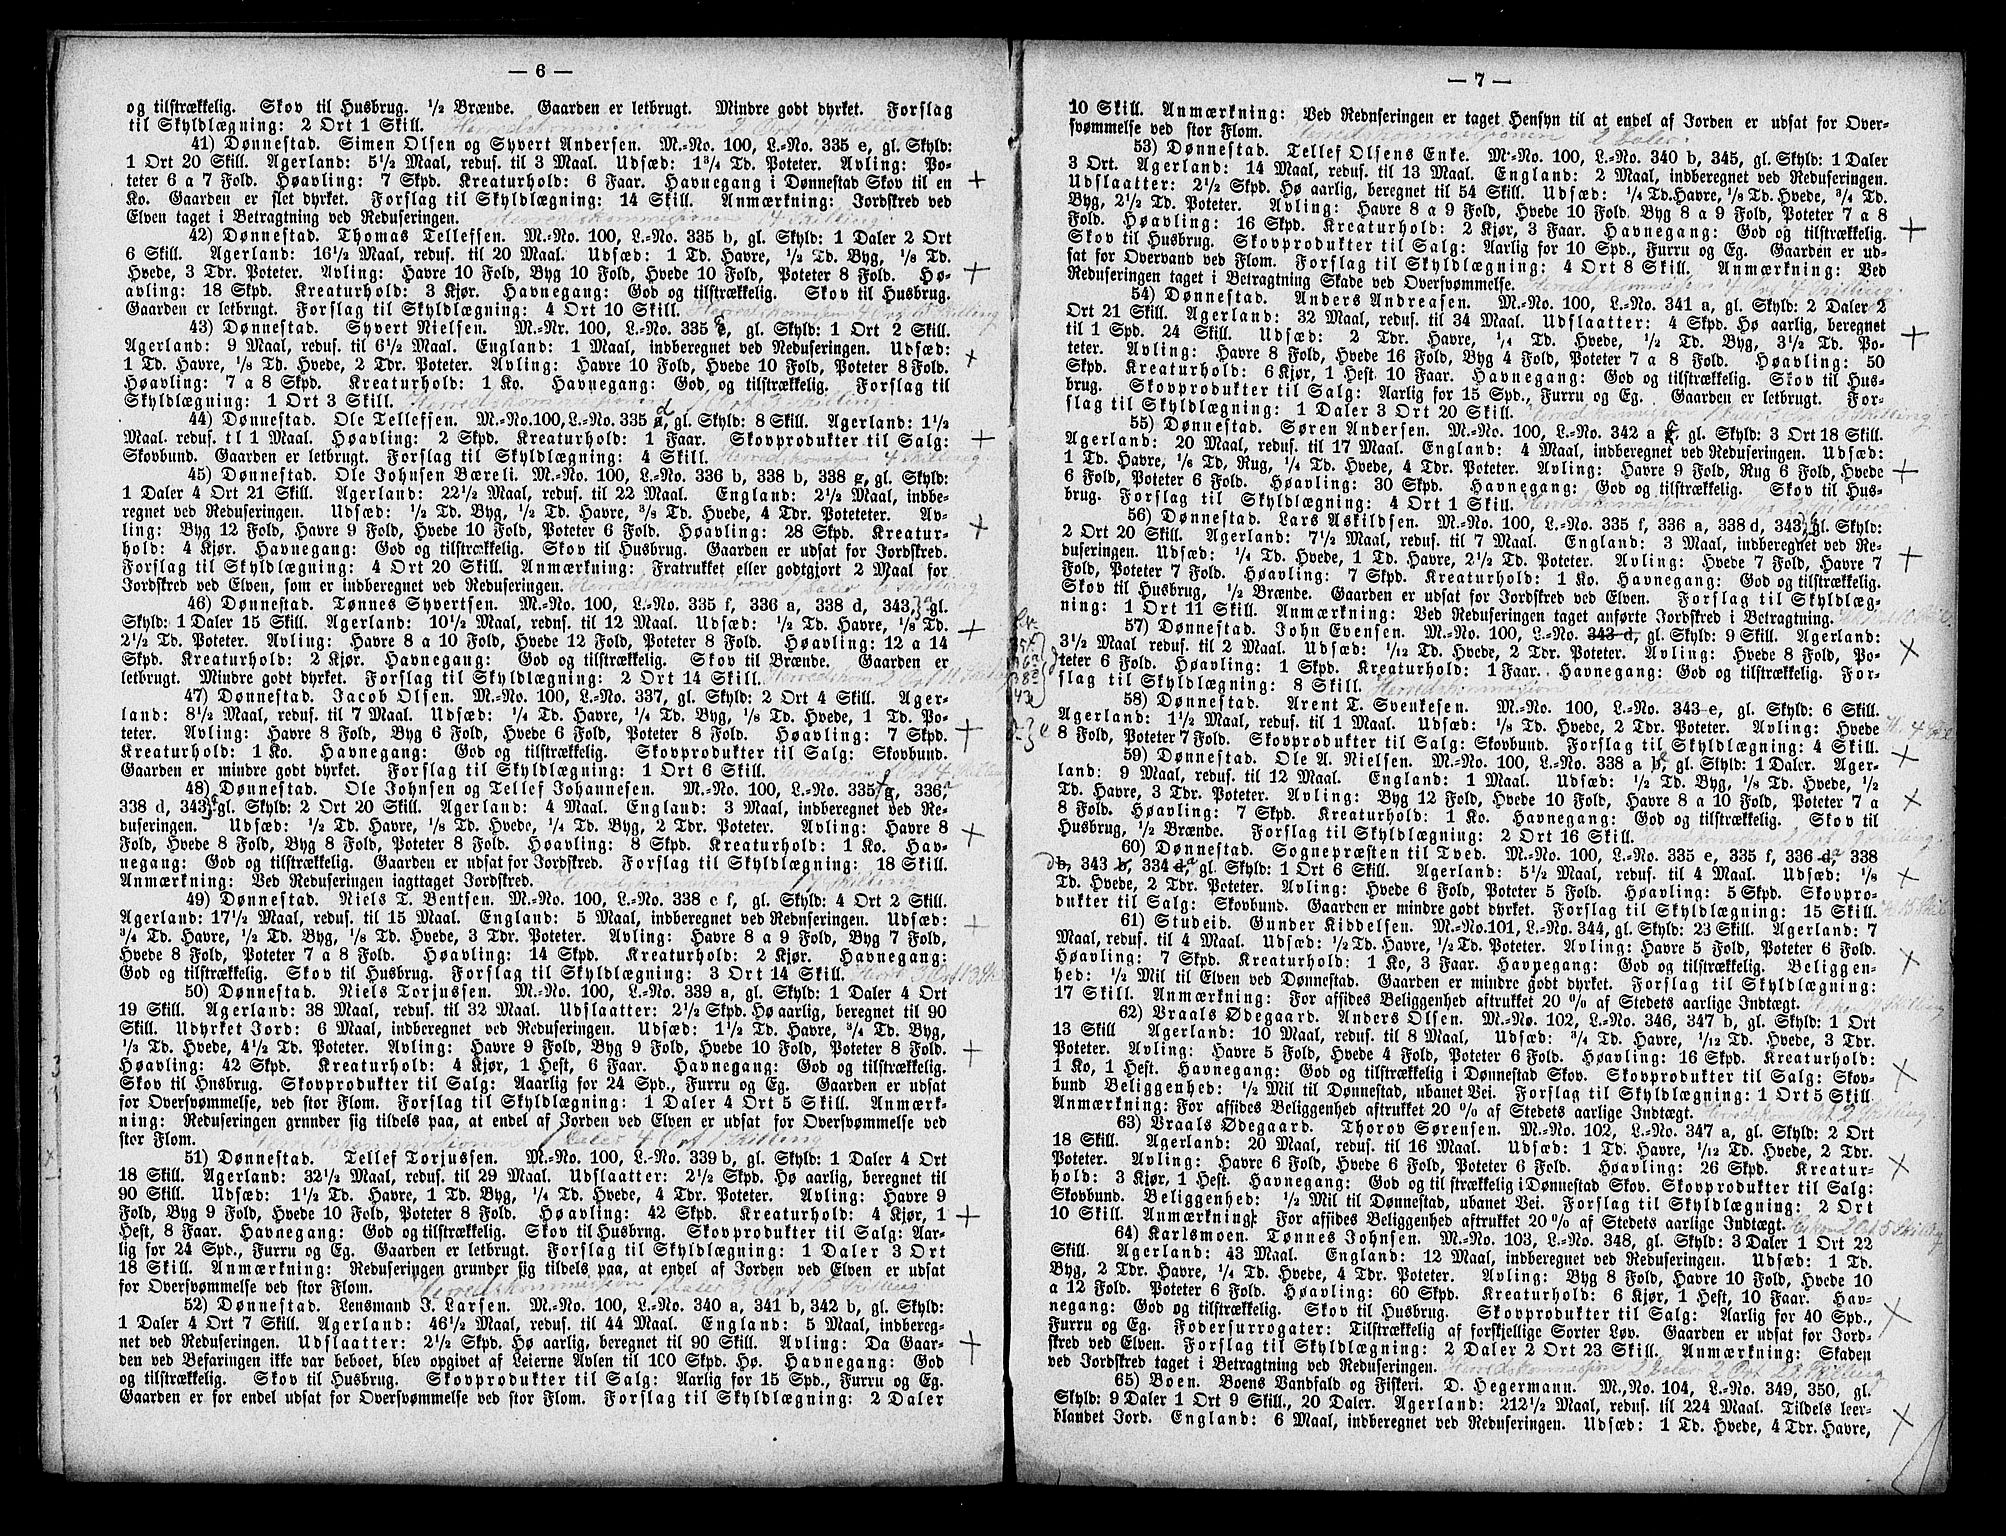 — 6 —
og tilstrækkelig. Skov til Husbrug. ½ Brænde. Gaarden er letbrugt. Mindre godt dyrket. Forslag
til Skyldlægning: 2 Ort 1 Skill. Herredskommissionen 2 Ort 4 Skilling
41) Dønnestad. Simen Olsen og Syvert Andersen. M.-No. 100, L.-No. 335 e, gl. Skyld:
1 Ort 20 Skill. Agerland: 5½ Maal, redus. til 3 Maal. Udsæd: 1¾ Td. Poteter. Avling: Po-
teter 6 a 7 Fold. Høavling: 7 Skpd. Kreaturhold: 6 Faar. Havnegang i Dønnestad Skov til en
Ko. Gaarden er slet dyrket. Forslag til Skyldlægning: 14 Skill. Anmærkning: Jordskred ved
Elven taget i Betragtning ved Reduseringen. Herredskommissionen 14 Skilling.
42) Dønnestad. Thomas Tellefsen. M.-No. 100, L.-No. 335 b, gl. Skyld: 1 Daler 2 Ort
6 Skill. Agerland: 16½ Maal, redus. til 20 Maal. Udsæd: 1 Td. Havre, ½ Td. Byg, ⅛ Td.
Hvede, 3 Tdr. Poteter. Avling: Havre 10 Fold, Byg 10 Fold, Hvede 10 Fold, Poteter 8 Fold. Hø-
avling: 18 Skpd. Kreaturhold: 3 Kjør. Havnegang: God og tilstrækkelig. Skov til Husbrug.
Gaarden er letbrugt. Forslag til Skyldlægning: 4 Ort 10 Skill. Herredskommission 4 Ort 15 Skilling
43) Dønnestad. Syvert Nielsen. M.-Nr. 100, L.-No. 335 c, gl. Skyld: 1 Ort 2 Skill.
Agerland: 9 Maal, redus. til 6½ Maal. England: 1 Maal, indberegnet ved Reduseringen. Udsæd:
1 Td. Havre, ⅛ Td. Hvede, 2 Tdr. Poteter. Avling: Havre 10 Fold, Hvede 10 Fold, Poteter 8 Fold.
Høavling: 7 a 8 Skpd. Kreaturhold: 1 Ko. Havnegang: God, og tilstrækkelig. Forslag til
Skyldlægning: 1 Ort 3 Skill. Herredskommissionen 1 Ort 3 Skilling
44) Dønnestad. Ole Tellefsen. M.-No.100, L.-No. 335 d, gl. Skyld: 8 Skill. Agerland: 1½
Maal. redus. tl 1 Maal. Høavling: 2 Skpd. Kreaturhold: 1 Faar. Skovprodukter til Salg:
Skovbund. Gaarden er letbrugt. Forslag til Skyldlægning: 4 Skill. Herredskommission 4 Skilling
45) Dønnestad. Ole Johnsen Bæreli. M.-No. 100, L.-No. 336 b, 338 b, 338 g, gl. Skyld:
1 Daler 4 Ort 21 Skill. Agerland: 22½ Maal, redus. til 22 Maal. England: 2½ Maal, indbe-
regnet ved Reduseringen. Udsæd: ½ Td. Byg, ½ Td. Havre, ⅜ Td. Hvede, 4 Tdr. Poteteter. Av-
ling: Byg 12 Fold, Havre 9 Fold, Hvede 10 Fold, Poteter 6 Fold. Høavling: 28 Skpd. Kreatur-
hold: 4 Kjør. Havnegang: God og tilstrækkelig. Skov til Husbrug. Gaarden er udsat for Jordskred.
Forslag til Skyldlægning: 4 Ort 20 Skill. Anmærkning: Fratrukket eller godtgjort 2 Maal for
Jordskred ved Elven, som er indberegnet ved Reduseringen. Herredskommission 1 Daler Skilling
46) Dønnestad. Tønnes Syvertsen. M.-No. 100, L.-No. 335 f, 336 a, 338 d, 343, gl.
Skyld: 1 Daler 15 Skill. Agerland: 10½ Maal, redus. til 12 Maal. Udsæd: ½ Td. Havre, ⅛ Td.
2½ Td. Poteter. Avling: Havre 8 a 10 Fold, Hvede 12 Fold, Poteter 8 Fold. Høavling: 12 a 14
Skpd. Kreaturhold: 2 Kjør. Havnegang: God og tilstrækkelig. Skov til Brænde. Gaarden er
letbrugt. Mindre godt dyrket. Forslag til Skyldlægning: 2 Ort 14 Skill. Herredskom 2 Ort
47) Dønnestad. Jacob Olsen. M.-No. 100, L.-No. 337, gl. Skyld: 2 Ort 4 Skill. Ager-
land: 8½ Maal, redus. til 7 Maal. Udsæd: ¼ Td. Havre, ¼ Td. Byg, ⅛ Td. Hvede, 1 Td. Po-
teter. Avling: Havre 8 Fold, Byg 6 Fold, Hvede 6 Fold, Poteter 8 Fold. Høavling: 7 Skpd.
Kreaturhold: 1 Ko. Havnegang: God og tilstrækkelig. Skovprodukter til Salg: Skovbund.
Gaarden er mindre godt dyrket. Forslag til Skyldlægning: 1 Ort 6 Skill. Herredskom Ort 4 Skilling
48) Dønnestad. Ole Johnsen og Tellef Johannesen. M.-No. 100, L.-No. 335 f g, 336, a
338 d, 343 c gl. Skyld: 2 Ort 20 Skill. Agerland: 4 Maal. England: 3 Maal, indberegnet ved Re-
duseringen. Udsæd: ½ Td. Havre, ⅛ Td. Hvede, ¼ Td. Byg, 2 Tdr. Poteter. Avling: Havre 8
Fold, Hvede 8 Fold, Byg 8 Fold, Poteter 8 Fold. Høavling: 8 Skpd. Kreaturhold: 1 Ko. Hav-
negang: God og tilstrækkelig. Gaarden er udsat for Jordskred. Forslag til Skyldlægning: 18 Skill.
Anmærkning: Ved Reduseringen iagttaget Jordskred. Herredskommissionen Skilling
49) Dønnestad. Niels T. Bentsen. M.-No. 100, L.-No. 338 c f, gl. Skyld: 4 Ort 2 Skill.
Agerland: 17½ Maal, redus. til 15 Maal. England: 5 Maal, indberegnet ved Reduseringen. Udsæd:
¾ Td. Havre, ½ Td. Byg, ⅛ Td. Hvede, 3 Tdr. Poteter. Avling: Havre 8 a 9 Fold, Byg 7 Fold,
Hvede 8 Fold, Poteter 7 a 8 Fold. Høavling: 14 Skpd. Kreaturhold: 2 Kjør. Havnegang:
God og tilstrækkelig. Skov til Husbrug. Forslag til Skyldlægning: 3 Ort 14 Skill. Herred 3 Ort 13
50) Dønnestad. Niels Torjussen. M.-No. 100, L.-No. 339 a, gl. Skyld: 1 Daler 4 Ort
19 Skill. Agerland: 38 Maal, redus. til 32 Maal. Udslaatter: 2½ Skpd. Hø aarlig, beregnet til 90
Skill. Udyrket Jord: 6 Maal, indberegnet ved Reduseringen. Udsæd: 1½ Td. Havre, ¾ Td. Byg,
⅓ Td. Hvede, 4½ Td. Poteter. Avling: Havre 9 Fold, Byg 9 Fold, Hvede 10 Fold, Poteter 8 Fold.
Høavling: 42 Skpd. Kreaturhold: 4 Kjør, 1 Hest, 6 Faar. Havnegang: God og tilstrækkelig.
Skov til Husbrug. Skovprodukter til Salg: Aaarlig for 24 Spd., Furru og Eg. Gaarden er udsat
for Oversvømmelse, ved stor Flom. Forslag til Skyldlægning: 1 Daler 4 Ort 5 Skill. Anmærk-
ning: Reduseringen grnnder sig tildels paa, at endel af Jorden ved Elven er udsat for Oversvømmelse ved
stor Flom. Herredskommissionen 1 Daler 4 Ort 1 Skilling
51) Dønnestad. Tellef Torjussen. M.-No. 100, L.-No. 339 b, gl. Skyld: 1 Daler 4 Ort
18 Skill. Agerland: 32½ Maal, redus. til 29 Maal. Udslaatter: 2½ Skpd. Hø aarlig, beregnet til
90 Skill. Udsæd: 1½ Td. Havre, 1 Td. Byg, ¼ Td. Hvede, 4 Tdr. Poteter. Avling: Havre 9
Fold, Byg 9 Fold, Hvede 10 Fold, Poteter 8 Fold. Høavling: 42 Skpd. Kreaturhold: 4 Kjør, 1
Hest, 8 Faar. Havnegang: God og tilstrækkelig. Skov til Husbrug. Skovprodukter til Salg: Aar-
lig for 24 Spd., Furru og Eg. Gaarden er letbrugt. Forslag til Skyldlægning: 1 Daler 3 Ort
18 Skill. Anmærkning: Reduseringen grunder sig tildels paa, at endel af Jorden ved Elven er udsat
for Oversvømmelse ved stor Flom. Herredskommission 1 Daler 3 Ort Skilling
52) Dønnestad. Lensmand J. Larsen. M.-No. 100, L.-No. 340 a, 341 b, 342 b, gl. Skyld:
1 Daler 4 Ort 7 Skill. Agerland: 46½ Maal, redus. til 44 Maal. England: 5 Maal, indbereg-
net ved Reduseringen. Udslaatter: 2½ Skpd. Hø aarlig, beregnet til 90 Skill. Avling: Da Gaar-
den ved Befaringen ikke var beboet, blev opgivet af Leierne Avlen til 100 Skpd. Hø. Havnegang: God
og tilstrækkelig. Skov til Husbrug. Skovprodukter til Salg: Aarlig for 15 Spd., Furru og Eg.
Gaarden er for endel udsat for Oversvømmelse ved stor Flom. Forslag til Skyldlægning: 2 Daler
— 7 —
10 Skill. Anmærkning: Ved Reduseringen er taget Hensyn til at endel af Jorden er udsat for Over-
svømmelse ved stor Flom. Herredskommissionen 2 Daler.
53) Dønnestad. Tellef Olsens Enke. M.-No. 100, L.-No. 340 b, 345, gl. Skyld: 1 Daler
3 Ort. Agerland: 14 Maal, redus. til 13 Maal. England: 2 Maal, indberegnet ved Reduseringen.
Udslaatter: 2½ Skpd. Hø aarlig, beregnet til 54 Skill. Udsæd: ¼ Td.Havre, ⅛ Td. Hvede, ¾ Td.
Byg, 2½ Td. Poteter. Avling: Havre 8 a 9 Fold, Hvede 10 Fold. Byg 8 a 9 Fold, Poteter 7 a 8
Fold. Høavling: 16 Skpd. Kreaturhold: 2 Kjør, 3 Faar. Havnegang: God og tilstrækkelig.
Skov til Husbrug. Skovprodukter til Salg: Aarlig for 10 Spd., Furru og Eg. Gaarden er ud-
sat for Overvand ved Flom. Forslag til Skyldlægning: 4 Ort 8 Skill. Anmærkning: Ved
Reduseringen taget i Betragtning Skade ved Oversvømmelse. Herredskommission 4 Ort 4 Skilling.
54) Dønnestad. Anders Andreasen. M.-No. 100, L.-No. 341 a, gl. Skyld: 2 Daler 2
Ort 21 Skill. Agerland: 32 Maal, redus. til 34 Maal. Udslaatter: 4 Skpd. Hø aarlig, beregnet
til 1 Spd. 24 Skill. Udsæd: 2 Tdr. Havre, ¼ Td. Hvede, ½ Td. Byg, 3½ Td. Po-
teter. Avling: Havre 8 Fold, Hvede 16 Fold, Byg 4 Fold, Poteter 7 a 8 Fold. Høavling: 50
Skpd. Kreaturhold: 6 Kjør, 1 Hest, 10 Faar. Havnegang: God og tilstrækkelig. Skov til Hus-
brug. Skovprodukter til Salg: Aarlig for 15 Spd., Furru og Eg. Gaarden er letbrugt. For-
slag til Skyldlægning: 1 Daler 3 Ort 20 Skill. Herredskommission 1 Daler 3 Ort Skilling
55) Dønnestad. Søren Andersen. M.-No. 100, L.-No. 342 a c, gl. Skyld: 3 Ort 18 Skill.
Agerland: 20 Maal, redus. til 17 Maal. England: 4 Maal, indberegnet ved Reduseringen. Udsæd:
1 Td. Havre, ⅛ Td. Rug, ¼ Td. Hvede, 4 Tdr. Poteter. Avling: Havre 9 Fold, Rug 6 Fold, Hvede
6 Fold, Poteter 6 Fold. Høavling: 30 Skpd. Havnegang: God og tilstrækkelig. Skov til Hus-
brug. Forslag til Skyldlægning: 4 Ort 1 Skill. Herredskommission 4 Ort Skilling
56) Dønnestad. Lars Askildsen. M.-No. 100, L.-No. 335 f, 336 a, 338 d, 343, gl. Skyld:
2 Ort 20 Skill. Agerland: 7½ Maal, redus. til 7 Maal. England: 3 Maal, indberegnet ved Re-
duseringen. Udsæd: ¼ Td. Hvede, 1 Td. Havre, 2½ Td. Poteter. Avling: Hvede 7 Fold, Havre 7
Fold, Poteter 7 Fold. Høavling: 7 Skpd. Kreaturhold: 1 Ko. Havnegang: God og tilstrækkelig.
Skov til Husbrug, ½ Brænde. Gaarden er udsat for Jordskred ved Elven. Forslag til Skyldlæg-
ning: 1 Ort 11 Skill. Anmærkning: Ved Reduseringen taget anførte Jordskred i Betragtning.
57) Dønnestad. John Evensen. M.-No. 100, L.-No. 343 d, gl. Skyld: 9 Skill. Agerland:
3½ Maal redus. til 2 Maal. Udsæd: 1/12 Td. Hvede, 2 Tdr. Poteter. Avling: Hvede 8 Fold, Po-
teter 6 Fold. Høavling: 1 Skpd. Kreaturhold: 1 Faar. Havnegang: God og tilstrækkelig. For-
slag til Skyldlægning: 8 Skill. Herredskommission 8 Skilling
58) Dønnestad. Arent T. Svenkesen. M.-No. 100, L.-No. 343 e, gl. Skyld: 6 Skill.
Agerland: 1½ Maal, redus. til 1 Maal. Udsæd: ⅛ Td. Hvede, 2 Tdr. Poteter. Avling: Hvede
8 Fold, Poteter 7 Fold. Skovprodukter til Salg: Skovbund. Forslag til Skyldlægning: 4 Skill.
59) Dønnestad. Ole A. Nielsen. M.-No. 100, L.-No. 338 a b, gl. Skyld: 1 Daler. Ager-
land: 9 Maal, redus. til 12 Maal. England: 1 Maal. Udsæd: ½ Td. Byg, ½ Td. Hvede, ½
Td. Havre, 3 Tdr. Poteter. Avling: Byg 12 Fold, Hvede 10 Fold, Havre 8 a 10 Fold, Poteter 7 a
8 Fold. Høavling: 7 Skpd. Kreaturhold: 1 Ko. Havnegang: God og tilstrækkelig. Skov til
Husbrug, ½ Brænde. Forslag til Skyldlægning: 2 Ort 16 Skill.
60) Dønnestad. Sognepræsten til Tved. M.-No. 100, L.-No. 335 e, 335 f, 336 d, a 338
b, 343 b, 334 d, a gl. Skyld: 1 Ort 6 Skill. Agerland: 5½ Maal, redus. til 4 Maal. Udsæd: ⅛
Td. Hvede, 2 Tdr. Poteter. Avling: Hvede 6 Fold, Poteter 5 Fold. Høavling: 5 Skpd. Skovpro-
dukter til Salg: Skovbund. Gaarden er mindre godt dyrket. Forslag til Skyldlægning: 15 Skill.
61) Studeid. Gunder Kiddelsen. M.-No.101, L.-No. 344, gl. Skyld: 23 Skill. Agerland: 7
Maal, redus. til 4 Maal. Udsæd: ½ Td. Havre, ½ Td. Poteter. Avling: Havre 5 Fold, Poteter 6 Fold.
Høavling: 7 Skpd. Kreaturhold: 1 Ko, 3 Faar. Havnegang: God og tilstrækkelig. Beliggen-
hed: ½ Mil til Elven ved Dønnestad. Gaarden er mindre godt dyrket. Forslag til Skyldlægning:
17 Skill. Anmærkning: For affides Beliggenhed aftrukket 20 % af Stedets aarlige Indtægt.
62) Vraals Ødegaard. Anders Olsen. M.-No. 102, L.-No. 346, 347 b, gl. Skyld: 1 Ort
13 Skill Agerland: 10 Maal, redus. til 8 Maal, Udsæd: ¾ Td. Havre, 1/12 Td. Hvede, 3 Tdr.
Poteter. Avling: Havre 5 Fold, Hvede 4 Fold, Poteter 6 Fold. Høavling: 16 Skpd. Kreaturhold:
1 Ko, 1 Hest. Havnegang: God og tilstrækkelig i Dønnestad Skov. Skovprodukter til Salg: Skov-
bund Beliggenhed: ½ Mil til Dønnestad, ubanet Vei. Forslag til Skyldlægning: 1 Ort 5 Skill.
Anmærkning: For affides Beliggenhed aftrukket 20 % af Stedets aarlige Indtægt.
63) Vraals Ødegaard. Thorov Sørensen. M.-No. 102, L.-No. 347 a, gl. Skyld: 2 Ort
18 Skill. Agerland: 20 Maal, redus. til 16 Maal. Udsæd: 1 Td. Havre, 1/12 Td. Hvede, 2 Tdr.
Poteter. Avling: Havre 6 Fold, Hvede 6 Fold, Poteter 6 Fold. Høavling: 26 Skpd. Kreatur-
hold: 3 Kjør, 1 Hest. Havnegang: God og tilstrækkelig i Dønnestad Skov. Skovprodukter til Salg:
Skovbund. Beliggenhed: ½ Mil til Dønnestad, ubanet Vei. Forslag til Skyldlægning: 2 Ort
10 Skill. Anmærkning: For affides Beliggenhed aftrukket 20 % af Stedets aarlige Indtægt.
64) Karlsmoen. Tønnes Johnsen. M.-No. 103, L.-No. 348, gl. Skyld: 3 Daler 1 Ort 22
Skill. Agerland: 43 Maal. England: 12 Maal, indberegnet ved Reduseringen. Udsæd: 1 Td.
Byg, 2 Tdr. Havre, ¼ Td. Hvede, 4 Tdr. Poteter. Avling: Byg 8 Fold, Havre 10 Fold, Hvede 10
a 12 Fold. Poteter 6 Fold. Høavling: 60 Skpd. Kreaturhold: 6 Kjør, 1 Hest, 10 Faar. Hav-
negang: God og tilstrækkelig. Skov til Husbrug. Skovprodukter til Salg: Aarlig for 40 Spd.,
Furru og Eg. Fodersurrogater: Tilstrækkelig af forskjellige Sorter Løv. Gaarden er udsat for Jord-
skred ved Elven. Forslag til Skyldlægning: 2 Daler 2 Ort 23 Skill. Anmærkning: Skaden
ved Jordskred taget i Betragtning ved Reduseringen. Herredskommission 2 Daler 2 Ort 23 Skilling
65) Boen. Boens Vandfald og Fiskeri. D. Hegermann. M.,No. 104, L.-No. 349, 350, gl.
Skyld: 9 Daler 1 Ort 9 Skill., 20 Daler. Agerland: 212½ Maal, redus. til 224 Maal. Tildels leer-
blandet Jord. England: 6 Maal, indberegnet ved Reduseringen. Udsæd: 1 Td. Hvede, 4 Tdr. Havre,